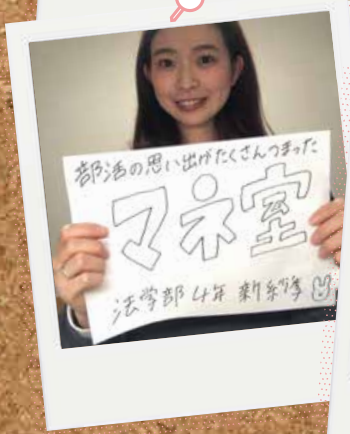 部活の思い出がたくさんつまった
マネ室
法学部 4年 新